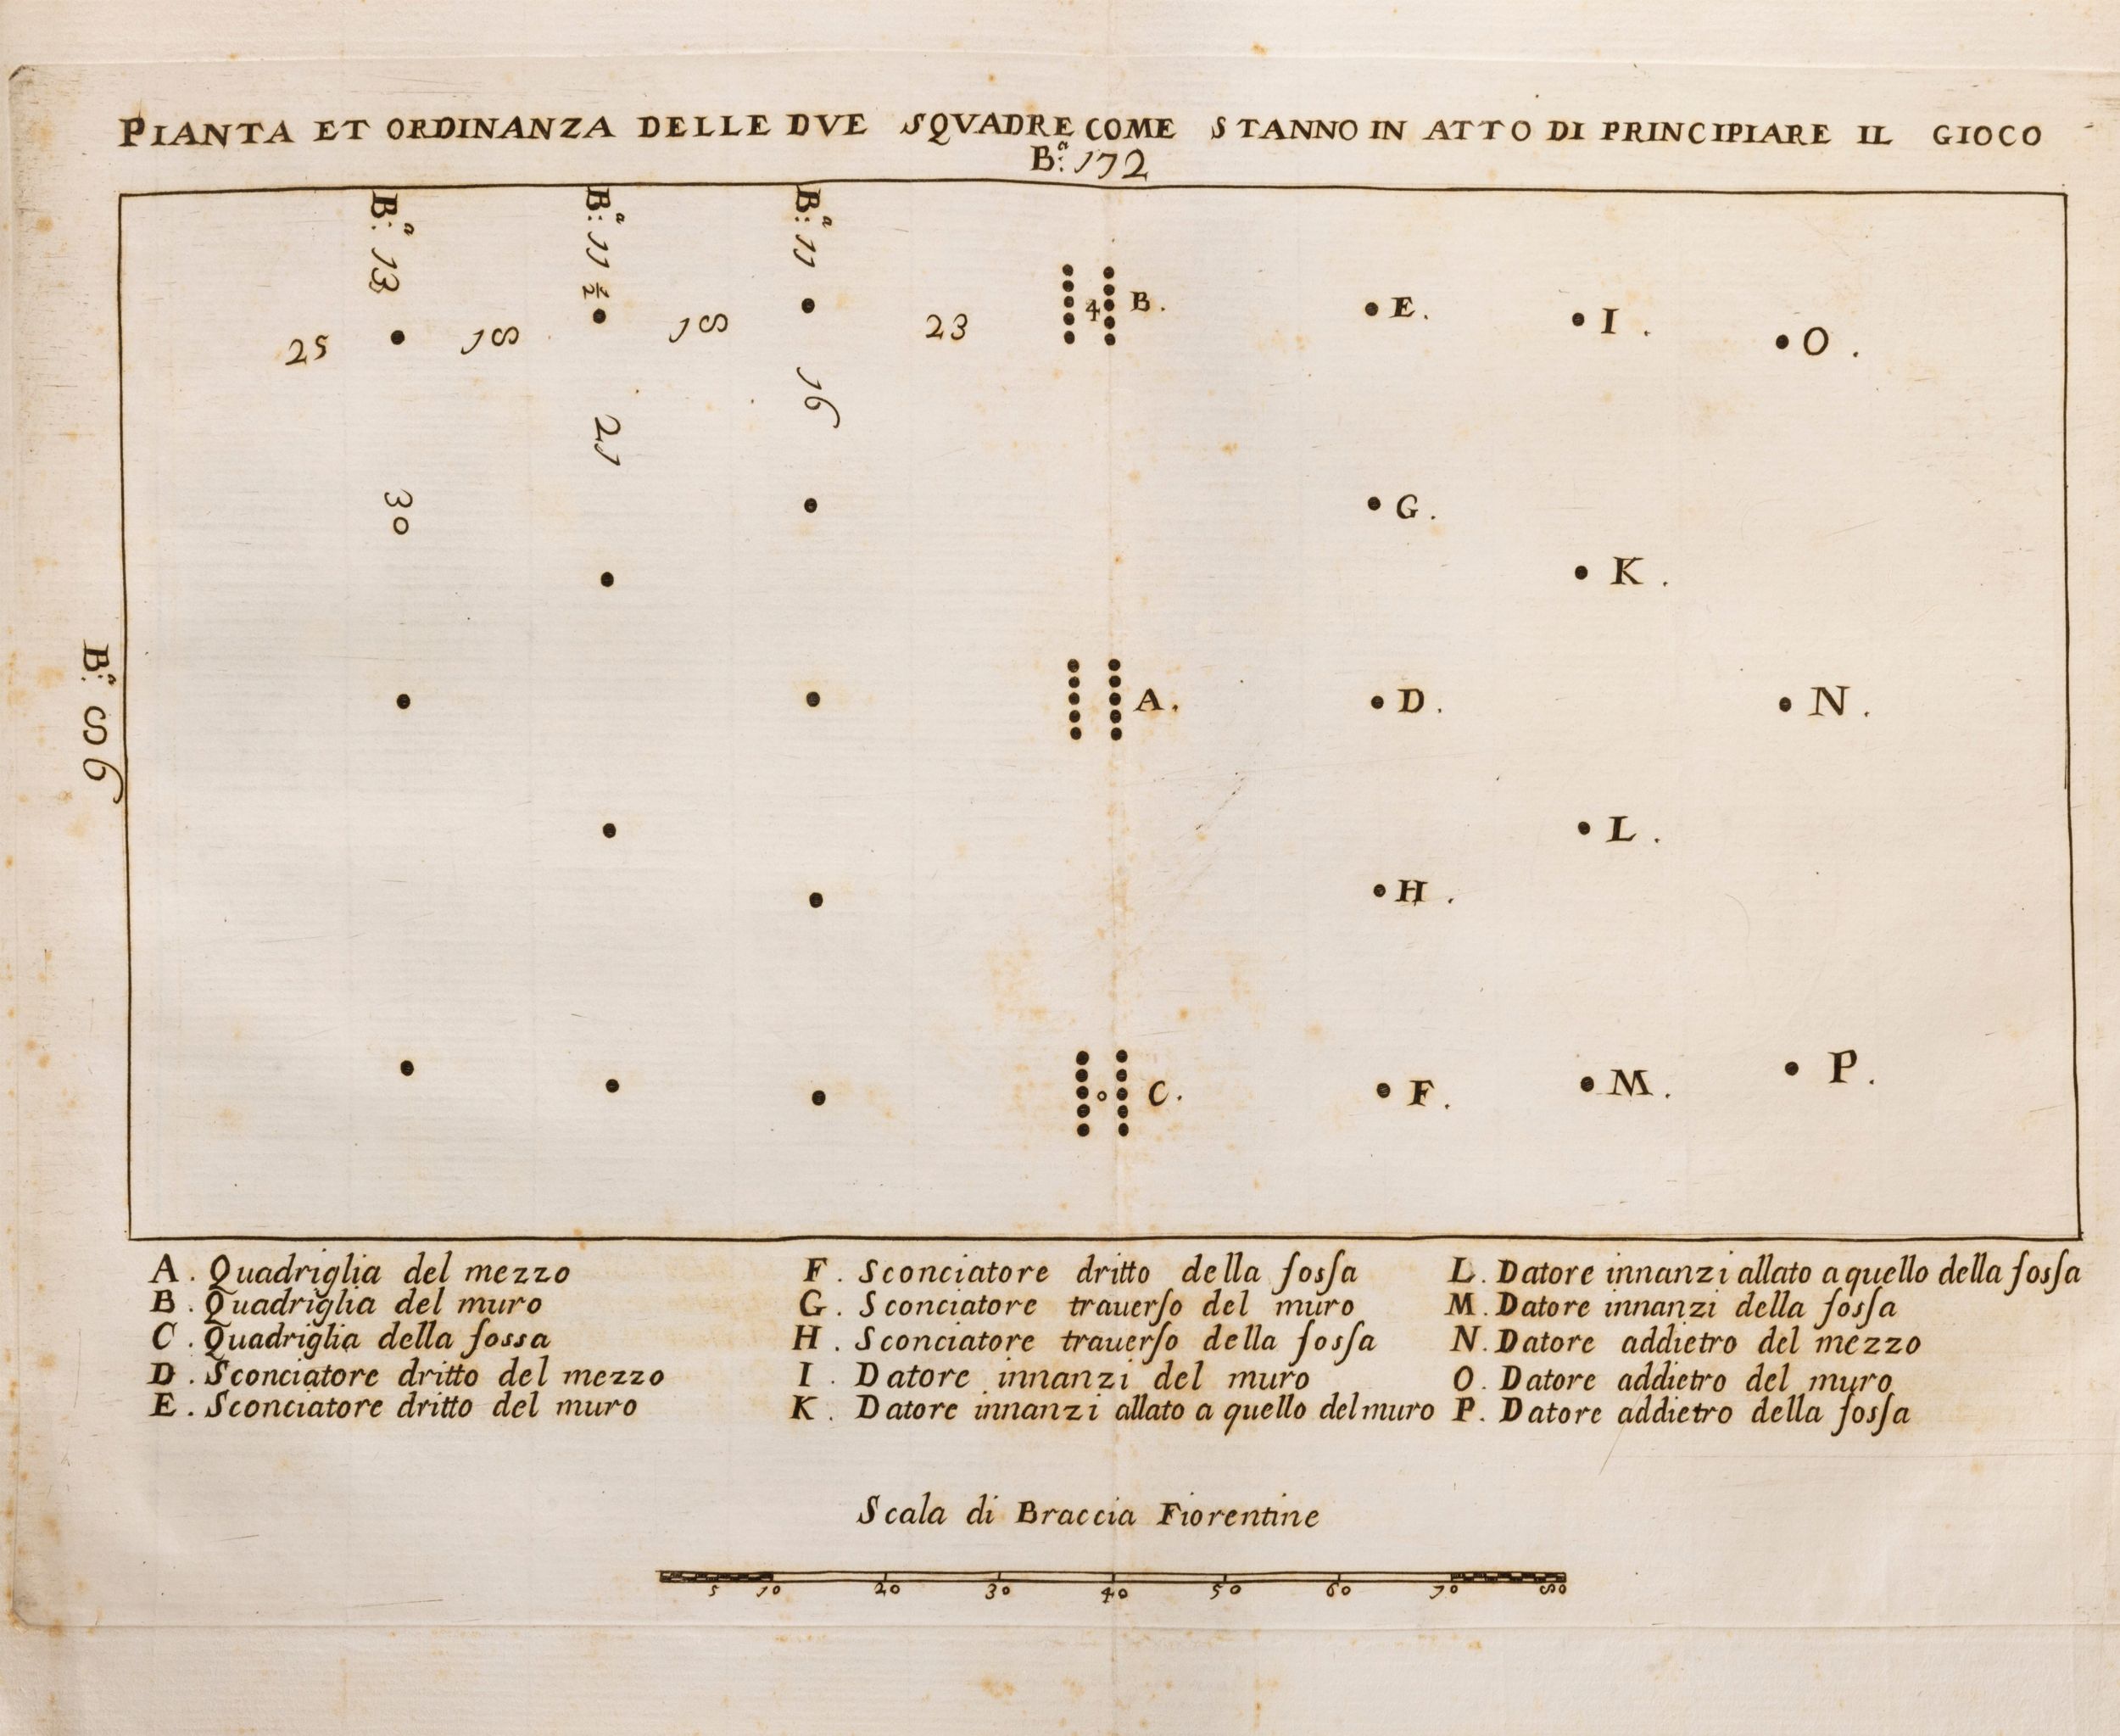 PIANTA ET ORDINANZA DELLE DVE SQVADRE COME STANNO IN ATTO DI PRINCIPIARE IL GIOCO
B:ª 172
B:ª 13
B:ª 11 ½
B:ª 11
25
18
18
23
4
B.
E.
I.
O.
16
21
30
G.
K.
B:ª 86
A.
D.
N.
L.
H.
C.
F.
M.
P.
A. Quadriglia del mezzo
B. Quadriglia del muro
C. Quadriglia della fossa
D. Sconciatore dritto del mezzo
E. Sconciatore dritto del muro
F. Sconciatore dritto della foſsa
G. Sconciatore trauerſo del muro
H. Sconciatore trauerſo della foſsa
I. Datore innanzi del muro
K. Datore innanzi allato a quello del muro
L. Datore innanzi allato a quello della foſsa
M. Datore innanzi della foſsa
N. Datore addietro del mezzo
O. Datore addietro del muro
P. Datore addietro della foſsa
Scala di Braccia Fiorentine
5 10 20 30 40 50 60 70 80